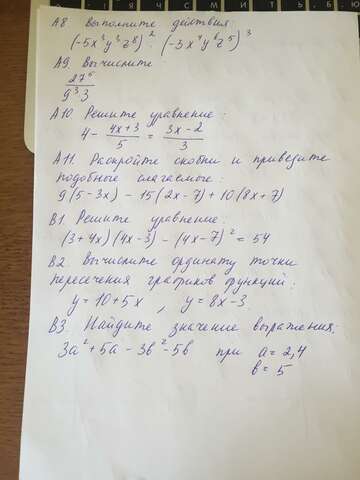 А8 Выполните действия:
(-5x³y³z⁸)² · (-3x⁴y⁶z⁵)³
А9 Вычислите
27⁵
9³3
А10 Решите уравнение:
4 - (4x+3)/5 = (3x-2)/3
А11. Раскройте скобки и приведите
подобные слагаемые:
9(5-3x) - 15(2x-7) + 10(8x+7)
В1 Решите уравнение:
(3+4x)(4x-3) - (4x-7)² = 54
В2. Вычислите ординату точки
пересечения графиков функций:
y = 10+5x , y = 8x-3
В3. Найдите значение выражения:
3a²+5a-3b²-5b при a=2,4
b=5